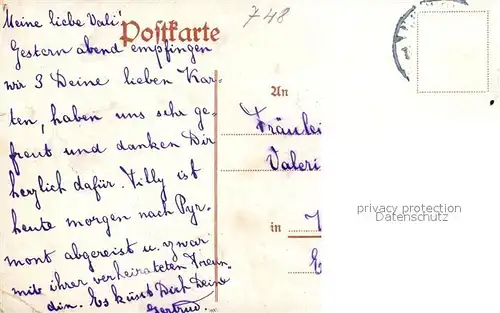 Meine liebe Vali!
Postkarte
748
Gestern abend empfingen
wir 3 Deine lieben Kar-
ten, haben uns sehr ge-
freut und danken Dir
herzlich dafür. Tilly ist
heute morgen nach Pyr-
mont abgereist u. zwar
mit ihrer verheirateten Freun-
din. Es küsst Dich Deine
Gertrud.
An
Fräulei
Valeri
in
privacy protection
Datenschutz